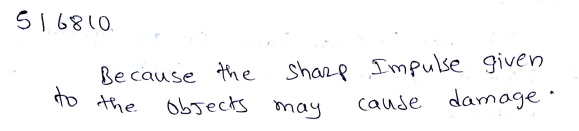 516810
Because the sharp Impulse given
to the objects may cause damage.